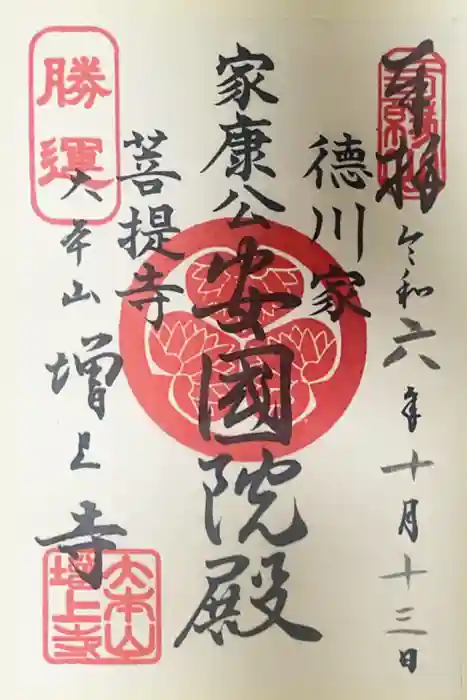 奉拝
令和六年十月十三日
徳川家
家康公
安國院殿
菩提寺
大本山
増上寺
勝運
大本山
増上寺